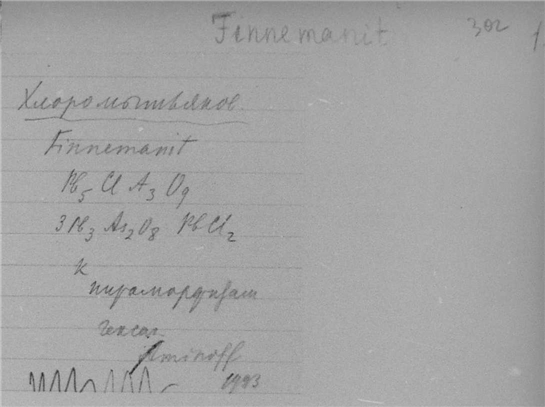 Finnemanit 302 1
Хлоромышьяков.
Finnemanit
Pb5 Cl A3 O9
3Pb3 As2O8 PbCl2
к
пироморфитам
гексаг
Aminoff
1923